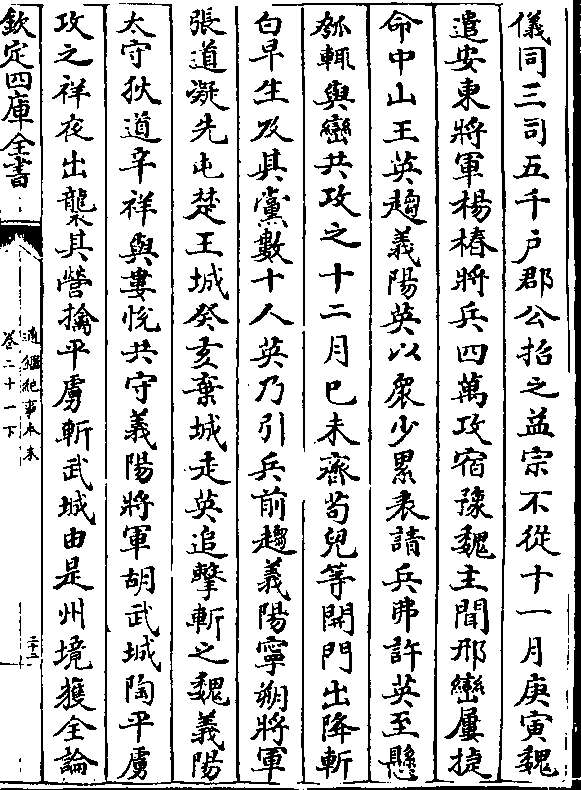 儀同三司五千户郡公招之益宗不從十一月庚寅魏
遣安東將軍楊椿將兵四萬攻宿豫魏主聞邢巒屢捷
命中山王英趨義陽英以衆少累表請兵弗許英至懸
瓠輒與巒共攻之十二月巳未齊茍兒等開門出降斬
白早生及其黨數十人英乃引兵前趨義陽寧朔將軍
張道凝先屯楚王城癸亥棄城走英追擊斬之魏義陽
太守狄道辛祥與婁悦共守義陽將軍胡武城陶平虜
攻之祥夜出襲其營擒平虜斬武城由是州境獲全論
欽定四庫全書
通鑑紀事本末
卷二十一下
二十二